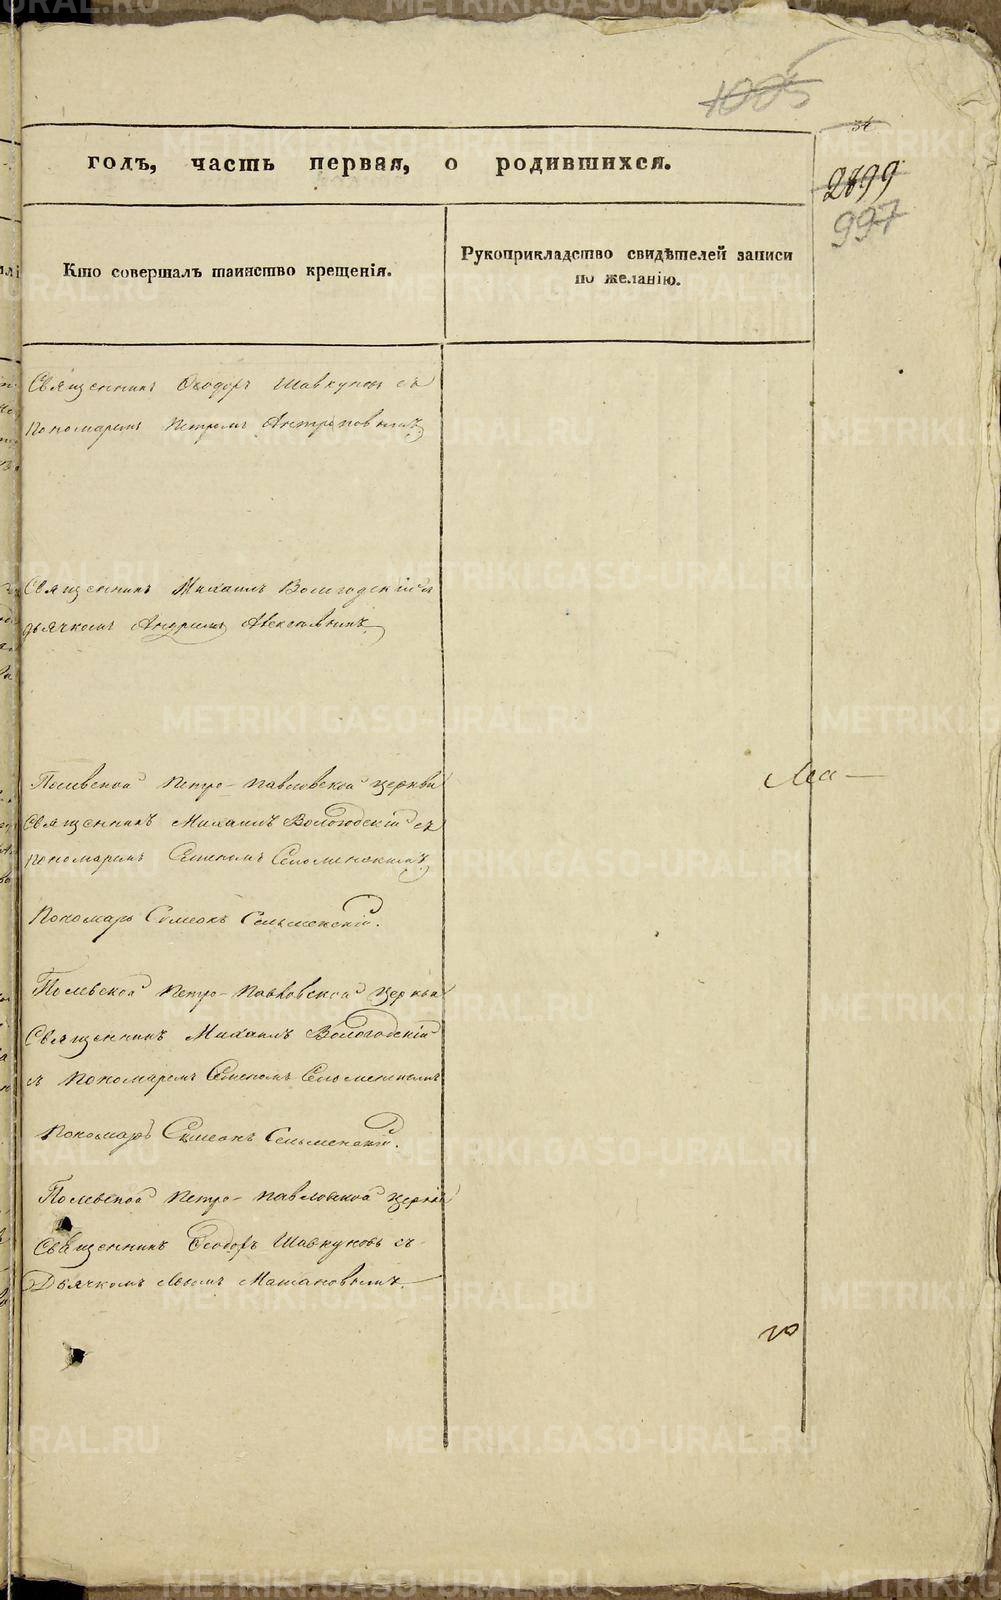 1005
34
годъ, часть первая, о родившихся.
2899
997
Кто совершалъ таинство крещенія.
Рукоприкладство свидѣтелей записи
по желанію.
Священникъ Ѳеодоръ Шавкуновъ съ
Пономаремъ Петромъ Антроповымъ
Священникъ Михаилъ Вологодскій съ
дьячкомъ Андреемъ
Полевской Петро-Павловской церкви
Священникъ Михаилъ Вологодскій съ
пономаремъ Симеономъ Сельменскимъ
Пономарь Симеонъ Сельменскій.
Полевской Петро-Павловской церкви
Священникъ Михаилъ Вологодскій
съ Пономаремъ Симеономъ Сельменскимъ
Пономарь Симеонъ Сельменскій.
Полевской Петро-Павловской церкви
Священникъ Ѳеодоръ Шавкуновъ съ
Дьячкомъ
METRIKI.GASO-URAL.RU